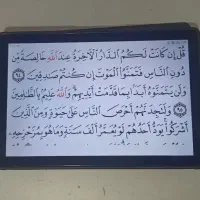 قُلْ إِن كَانَتْ لَكُمُ ٱلدَّارُ ٱلْءَاخِرَةُ عِندَ ٱللَّهِ خَالِصَةً مِّن
دُونِ ٱلنَّاسِ فَتَمَنَّوُا۟ ٱلْمَوْتَ إِن كُنتُمْ صَٰدِقِينَ ٩٤
وَلَن يَتَمَنَّوْهُ أَبَدًۢا بِمَا قَدَّمَتْ أَيْدِيهِمْ وَٱللَّهُ عَلِيمٌۢ بِٱلظَّٰلِمِينَ
٩٥ وَلَتَجِدَنَّهُمْ أَحْرَصَ ٱلنَّاسِ عَلَىٰ حَيَوٰةٍ وَمِنَ ٱلَّذِينَ
أَشْرَكُوا۟ يَوَدُّ أَحَدُهُمْ لَوْ يُعَمَّرُ أَلْفَ سَنَةٍ وَمَا هُوَ بِمُزَحْزِحِهِۦ